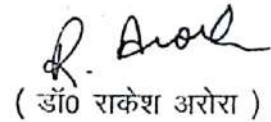 R. Arora
( डॉ0 राकेश अरोरा )